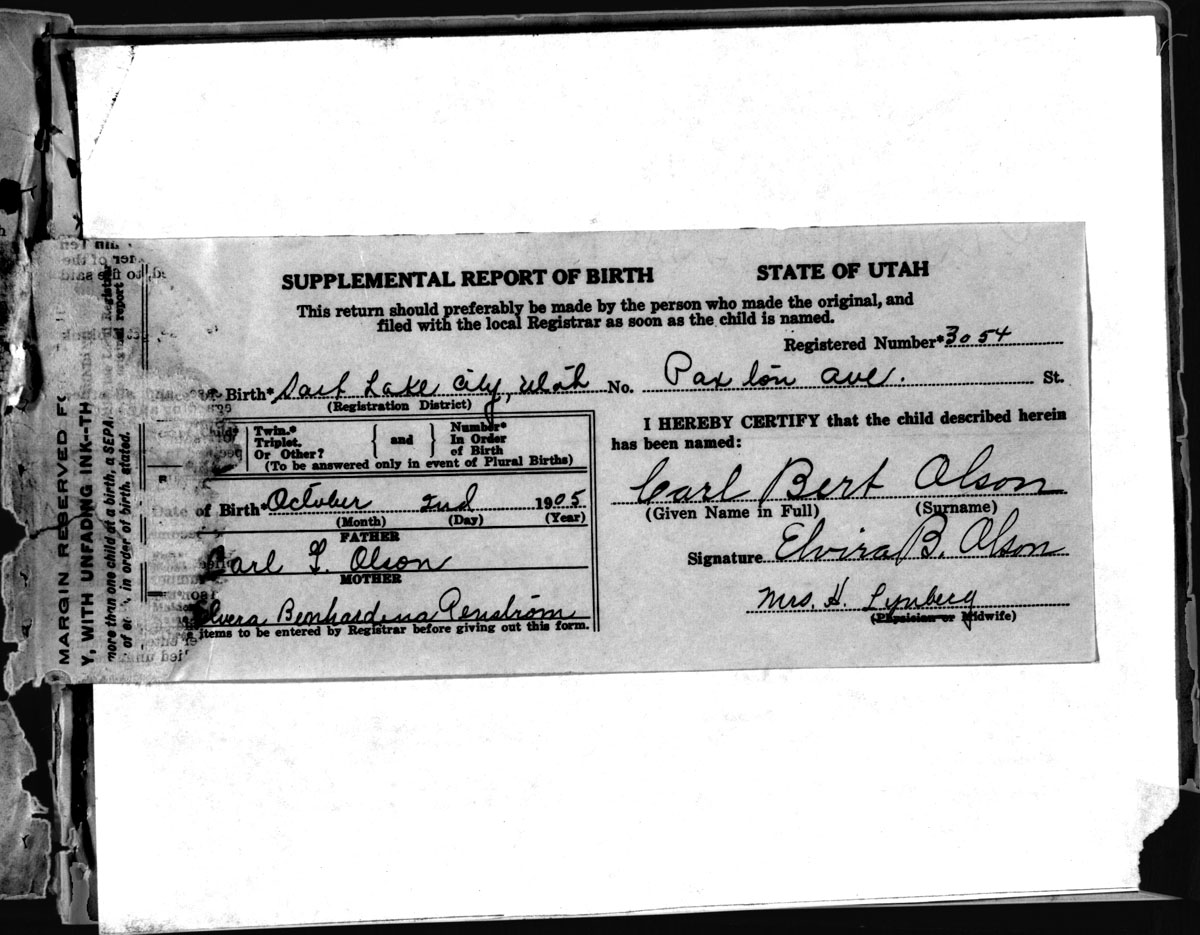 SUPPLEMENTAL REPORT OF BIRTH STATE OF UTAH
This return should preferably be made by the person who made the original, and
filed with the local Registrar as soon as the child is named.
Registered Number* 3054
of Birth* Salt Lake City, Utah No. Paxton Ave. St.
(Registration District)
Twin.*
Triplet.
Or Other?
and
Number*
In Order
of Birth
(To be answered only in event of Plural Births)
Date of Birth* October 2nd 1905
(Month) (Day) (Year)
FATHER
Carl F. Olson
MOTHER
Elvera Bernhardina Renstrom
items to be entered by Registrar before giving out this form.
I HEREBY CERTIFY that the child described herein
has been named:
Carl Bert Olson
(Given Name in Full) (Surname)
Signature Elvira B. Olson
Mrs. H. Lynberg
(Physician or Midwife)
MARGIN RESERVED
Y, WITH UNFADING INK--TH
more than one child at a birth, a SEPA
in order of birth, stated.